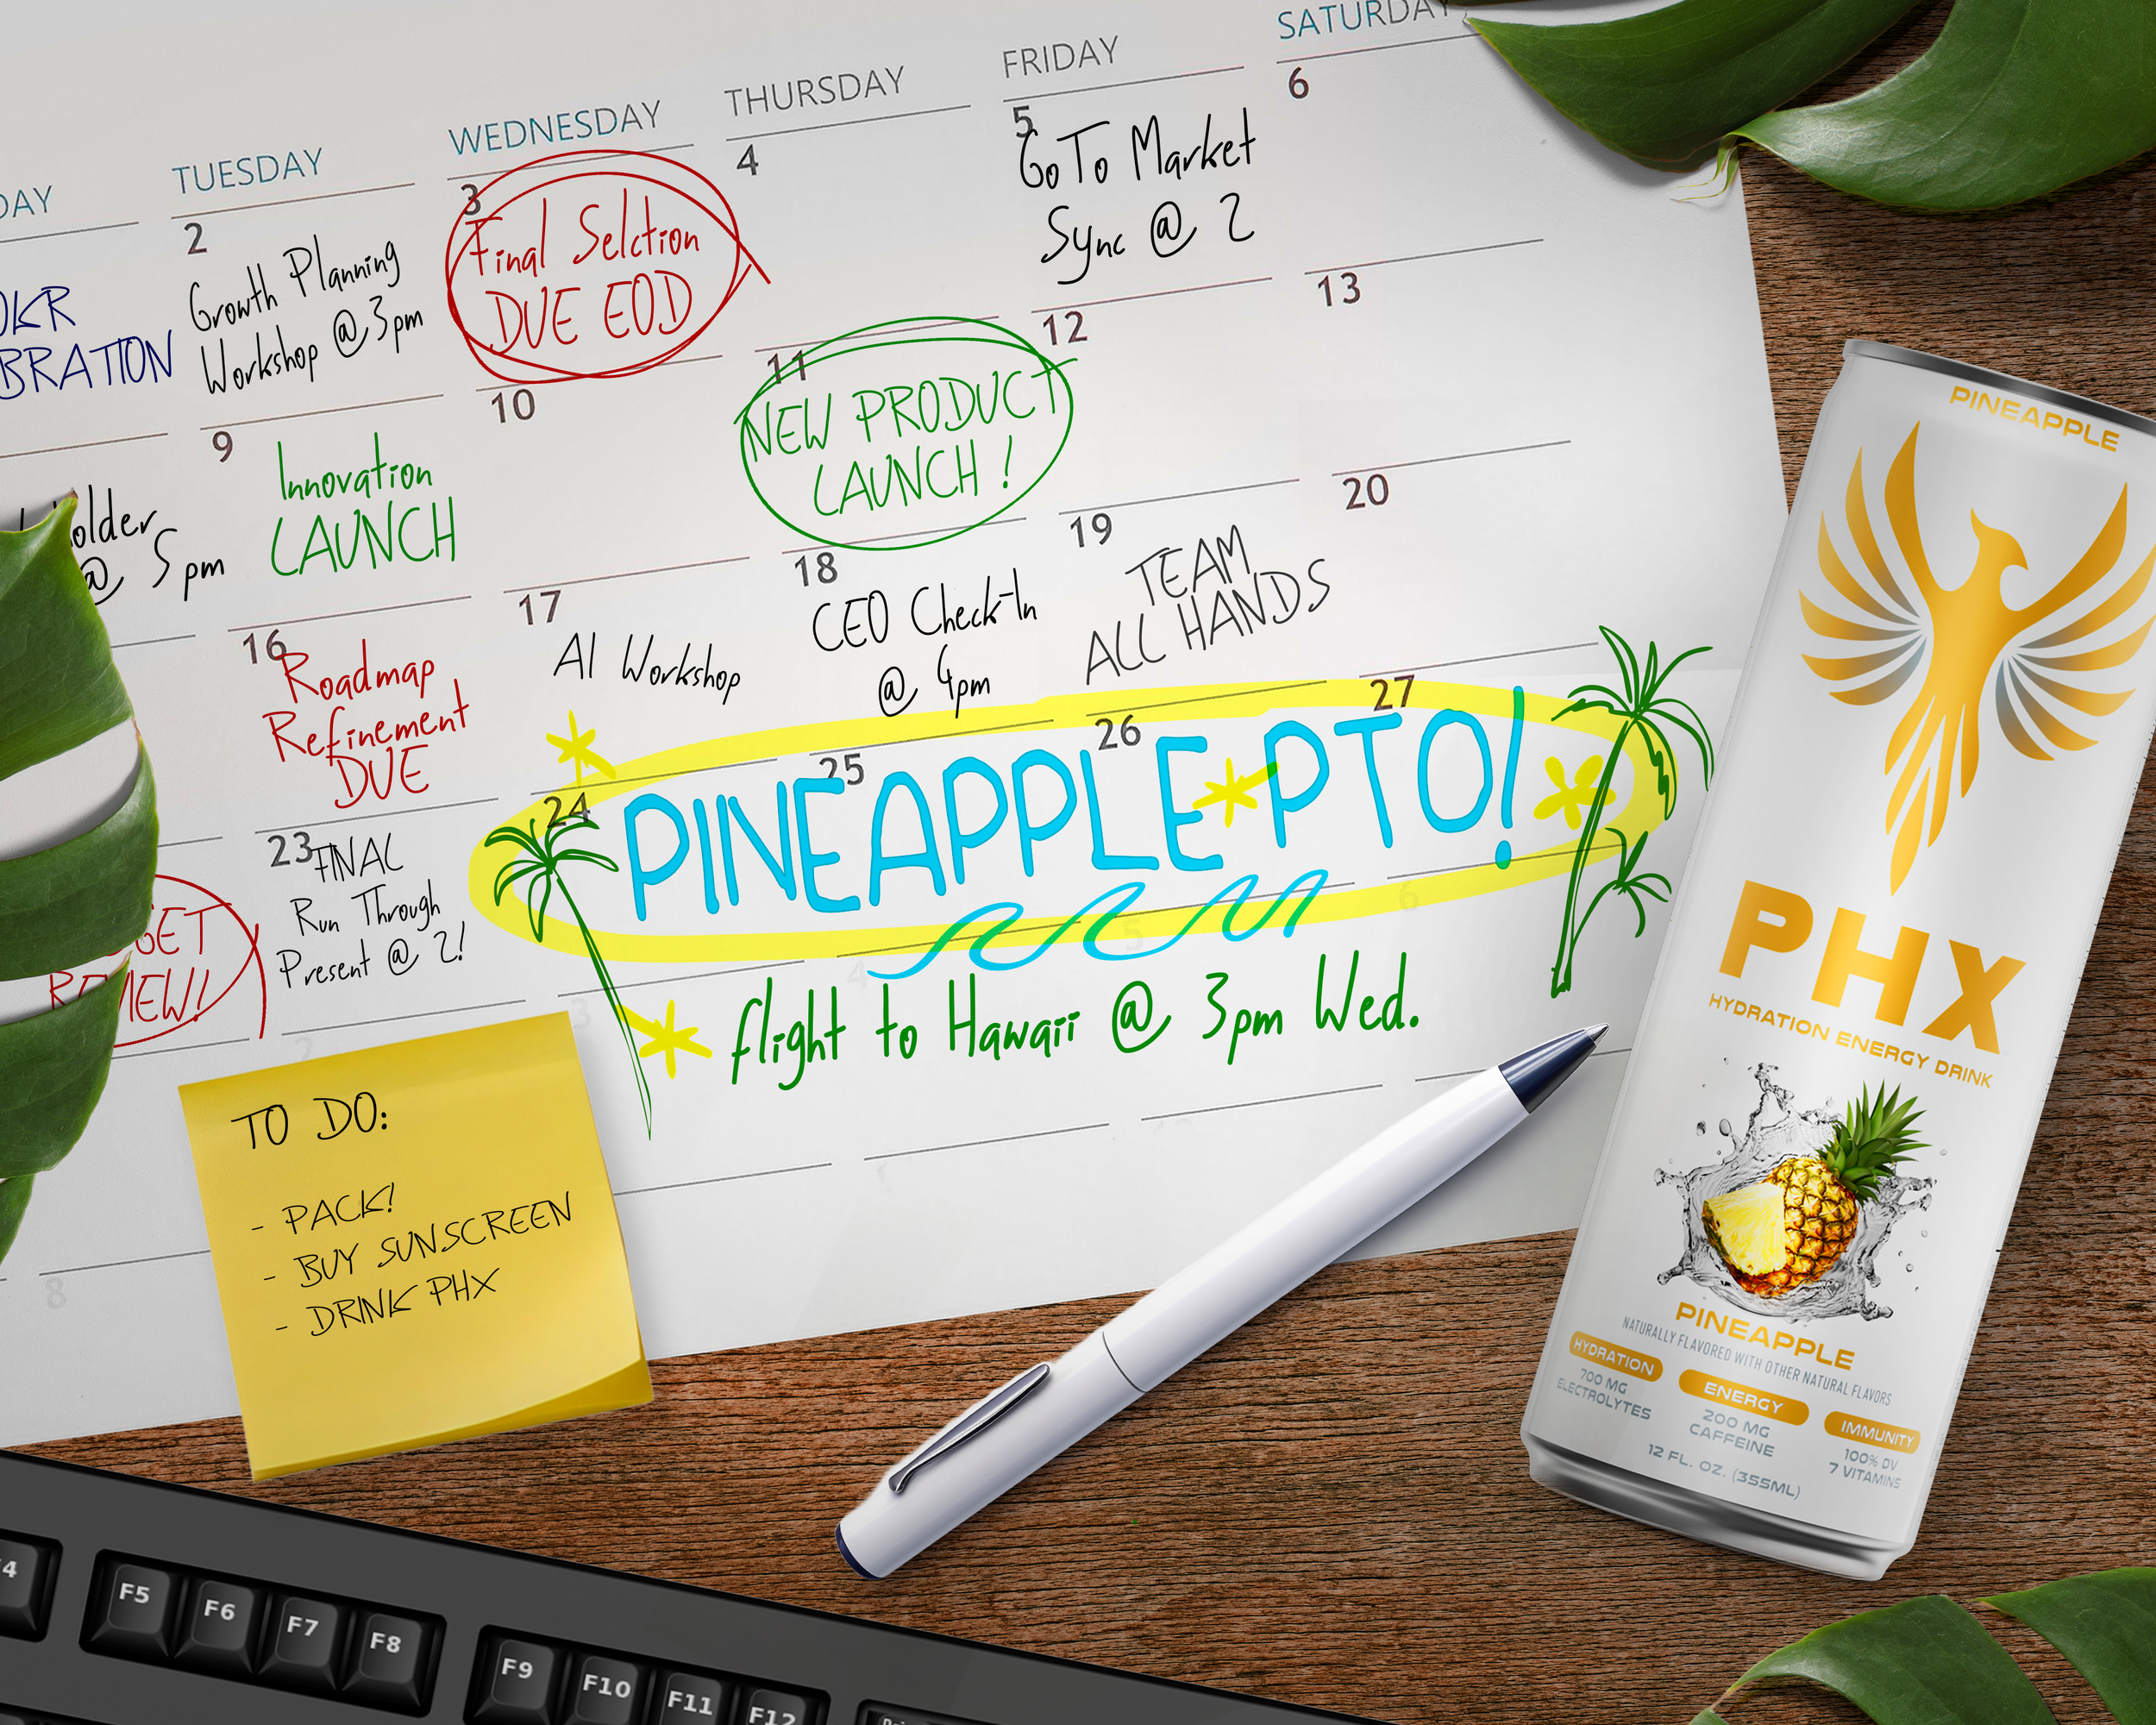 TUESDAY
WEDNESDAY
THURSDAY
FRIDAY
SATURDAY
2
Growth Planning
Workshop @ 3pm
3
Final Selction
DUE EOD
4
5
GoTo Market
Sync @ 2
6
OKR
9
Innovation
LAUNCH
@ 5pm
10
11
NEW PRODUCT
LAUNCH!
12
13
16
Roadmap
Refinement
DUE
17
AI Workshop
18
CEO Check-In
@ 4pm
19
TEAM
ALL HANDS
20
REVIEW!
23
FINAL
Run Through
Present @ 2!
24
25
26
27
PINEAPPLE PTO!
flight to Hawaii @ 3pm Wed.
2
3
4
5
6
8
TO DO:
- PACK!
- BUY SUNSCREEN
- DRINK PHX
PINEAPPLE
PHX
HYDRATION ENERGY DRINK
PINEAPPLE
NATURALLY FLAVORED WITH OTHER NATURAL FLAVORS
HYDRATION
700 MG
ELECTROLYTES
ENERGY
200 MG
CAFFEINE
IMMUNITY
100% DV
7 VITAMINS
12 FL. OZ. (355ML)
F5
F6
F7
F8
F9
F10
F11
F12